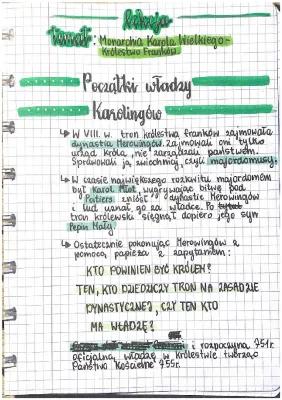 lekcja
temat: Monarchia Karola Wielkiego-
królestwo Franków
Początki władzy
Karolingów
↳ W VIII. w. tron królestwa franków zajmowała
dynastia Merowingów. Zajmowali oni tylko
urząd króla, nie zarządzali państwem.
Sprawowali ją zwierzchnicy, czyli majordomusy.
↳ W czasie największego rozkwitu majordomem
był Karol Młot, wygrywając bitwę pod
Poitiers zniósł dynastie Merowingów
i lud uznał go za władcę. Po
tron królewski sięgnął dopiero jego syn
Pepin Mały
↳ Ostatecznie pokonując Merowingów z
pomocą papieża z zapytaniem:
KTO POWINIEN BYĆ KRÓLEM?
TEN, KTO DZIEDZICZY TRON NA ZASADZIE
DYNASTYCZNEJ, CZY TEN KTO
MA WŁADZĘ?
i rozpoczyna 751r.
oficjalną władzę w królestwie tworząc
Państwo Kościelne 755r.